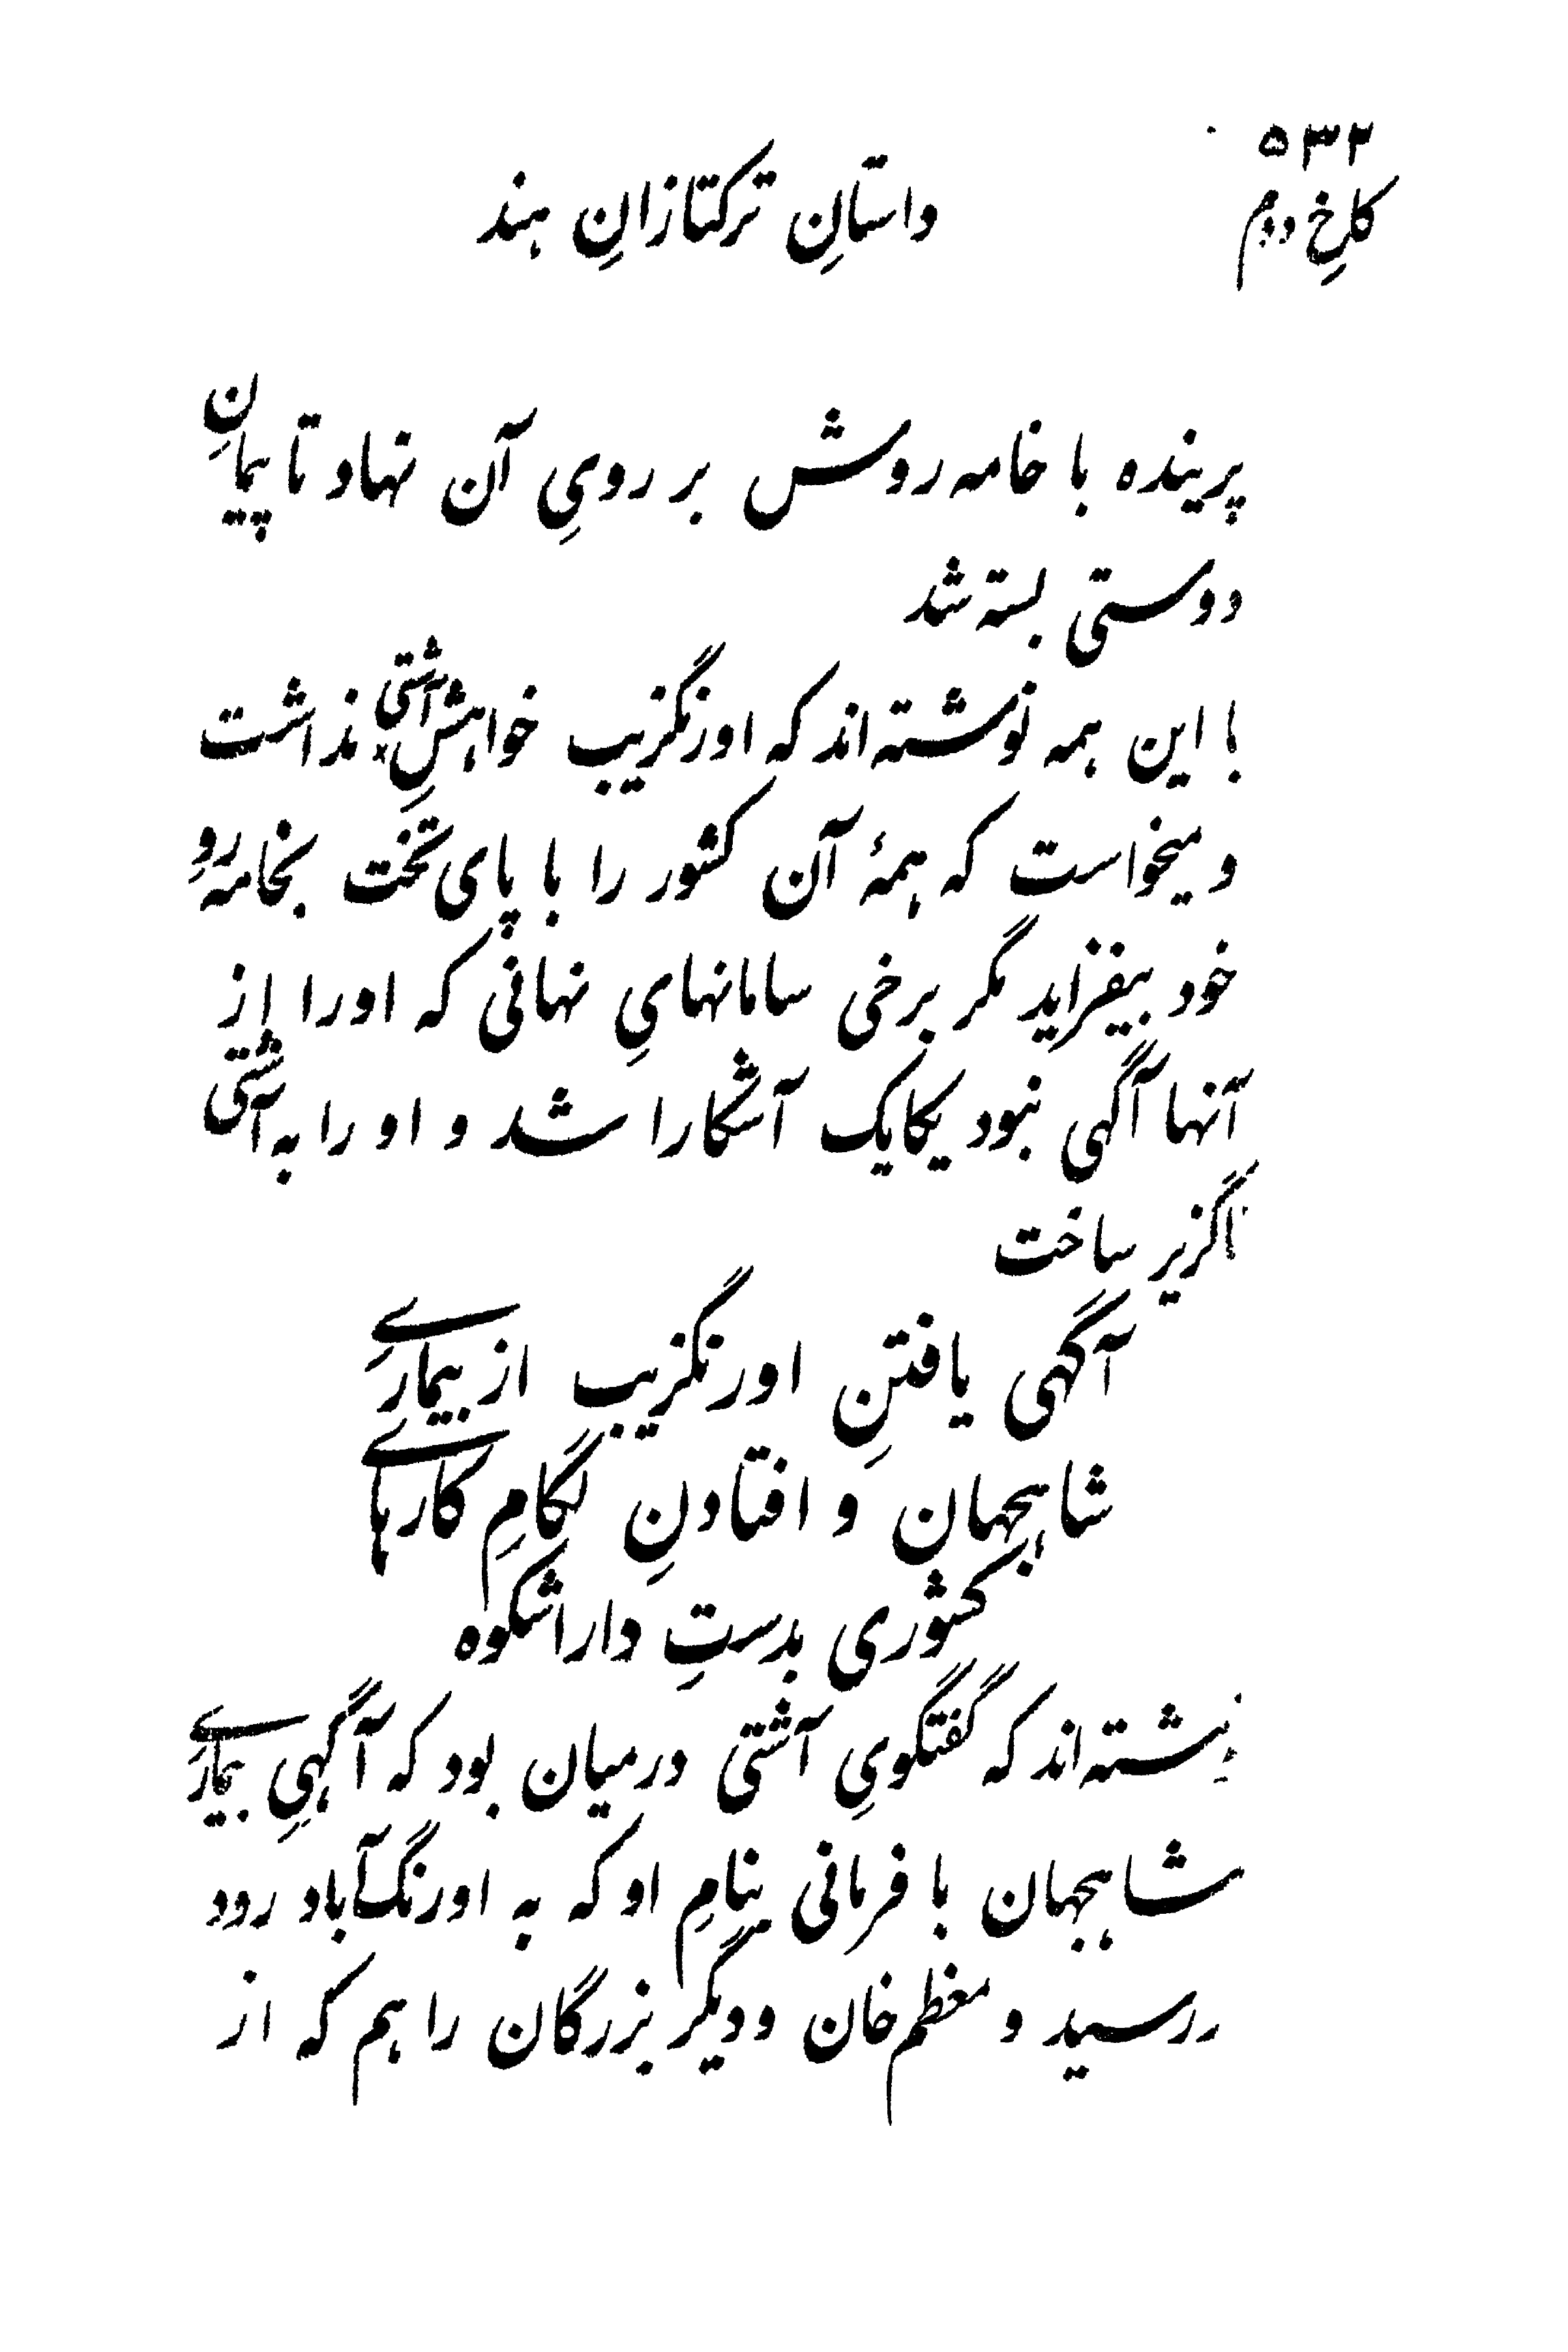 ۵۳۲
کاخِ دوم
داستانِ ترکتازانِ هند
پرینده با خامه روش بر رویِ آن نهاد تا پیمانِ
دوستی بسته شد
با این همه نوشته‌اند که اورنگزیب خواهشِ آشتی نداشت
و میخواست که همهٔ آن کشور را با پای تخت بخامه روِ
خود بیفزاید مگر برخی سامانهایِ نهانی که او را از
آنها آگهی نبود یکایک آشکارا شد و او را به آشتی
ناگزیر ساخت
آگهی یافتنِ اورنگزیب از بیماریِ
شاهجهان و افتادنِ لگامِ کارهای
کشوری بدستِ داراشکوه
نوشته‌اند که گفتگویِ آشتی در میان بود که آگهیِ بیماری
شاهجهان با فرمانی بنامِ او که به اورنگ‌آباد رود
رسید و معظم خان و دیگر بزرگان را هم که از